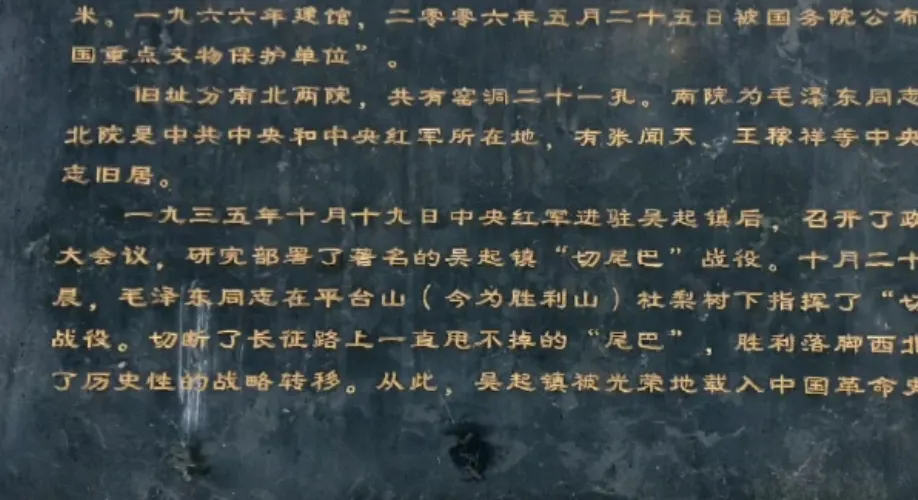 米。一九六六年建馆，二零零六年五月二十五日被国务院公布
国重点文物保护单位”。
旧址分南北两院，共有窑洞二十一孔。南院为毛泽东同志
北院是中共中央和中央红军所在地，有张闻天、王稼祥等中央
志旧居。
一九三五年十月十九日中央红军进驻吴起镇后，召开了政
大会议，研究部署了著名的吴起镇“切尾巴”战役。十月二十
晨，毛泽东同志在平台山（今为胜利山）杜梨树下指挥了“切
战役。切断了长征路上一直甩不掉的“尾巴”，胜利落脚西北
了历史性的战略转移。从此，吴起镇被光荣地载入中国革命史